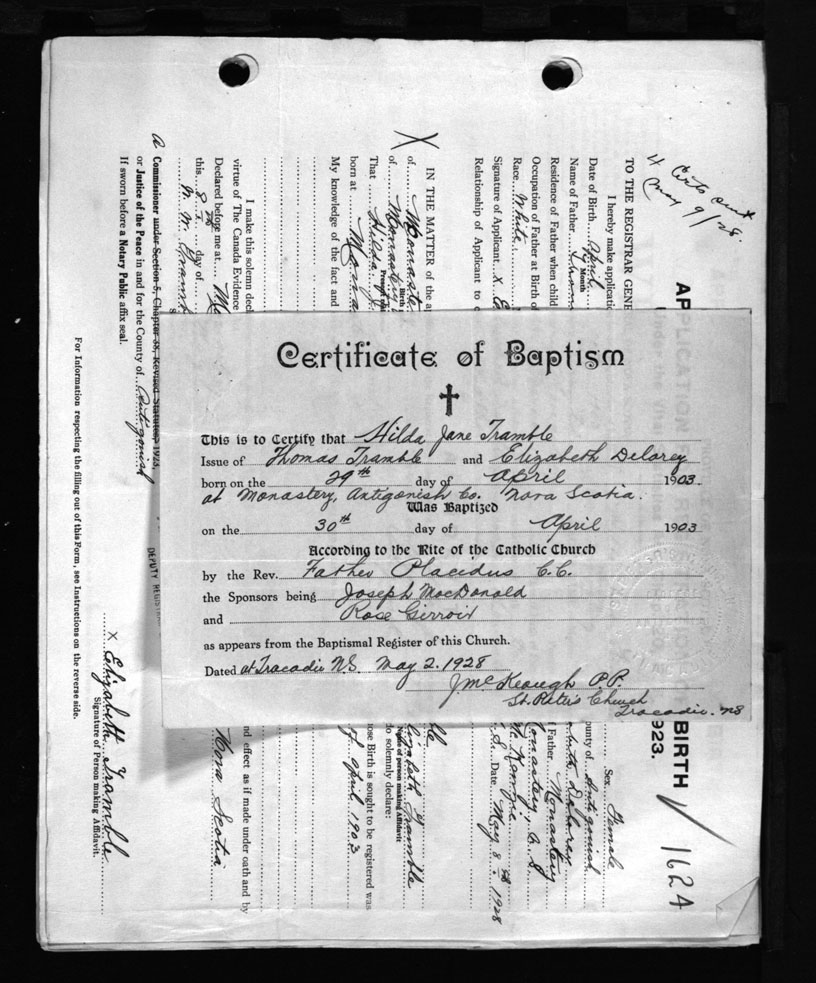 Certificate of Baptism
This is to Certify that Hilda Jane Tramble
Issue of Thomas Tramble and Elizabeth Delorey
born on the 29th day of April 1903.
at Monastery, Antigonish Co. Nova Scotia.
Was Baptized
on the 30th day of April 1903
According to the Rite of the Catholic Church
by the Rev. Father Placidus C.C.
the Sponsors being Joseph MacDonald
and Rose Girroir
as appears from the Baptismal Register of this Church.
Dated at Tracadie N.S. May 2. 1928
J. McKeough P.P.
St. Peter's Church
Tracadie. NS
Certs sent
May 9/28.
AP
BIRTH
923.
1624
TO THE REGISTRAR GENE
I hereby make applicatio
Date of Birth April
Month
Sex Female
Name of Father
ounty of Antigonish
Residence of Father when child
Father. Monastery
Occupation of Father at Birth o
Race White
Signature of Applicant x E
S. Date May 8th 1928
Relationship of Applicant to c
IN THE MATTER of the a
X
of Monaste
of Monastery
Elizabeth Tramble
Name of person making Affidavit
That Hilda J
do solemnly declare:
born at Mona
whose Birth is sought to be registered was
of April 1903
My knowledge of the fact and
I make this solemn decl
virtue of The Canada Evidence
nd effect as if made under oath and by
Declared before me at
Nova Scotia
this 8th day of
A Commissioner under Section 5, Chapter 38, Revised Statutes, 1923,
or Justice of the Peace in and for the County of Antigonish
If sworn before a Notary Public affix seal.
DEPUTY REGISTRA
x Elizabeth Tramble
Signature of Person making Affidavit.
For Information respecting the filling out of this Form, see Instructions on the reverse side.